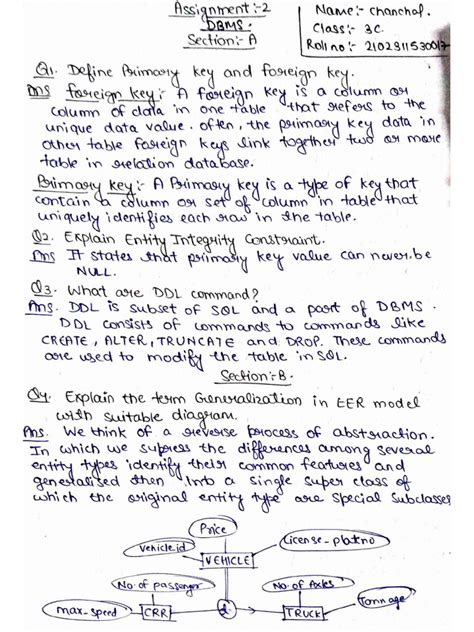 Assignment :- 2
DBMS.
Section :- A
Name :- Chanchal.
Class :- 3C
Roll no :- 2102311530017
Q1. Define Primary key and foreign key.
Ans foreign key :- A foreign key is a column or
column of data in one table that refers to the
unique data value. often, the primary key data in
other table foreign keys link together two or more
table in relation database.
Primary key :- A Primary key is a type of key that
contain a column or set of column in table that
uniquely identifies each raw in the table.
Q2. Explain Entity Integrity Constraint.
Ans It states that primary key value can never be
NULL.
Q3. What are DDL command?
Ans. DDL is subset of SQL and a part of DBMS.
DDL consists of commands to commands like
CREATE, ALTER, TRUNCATE and DROP. These commands
are used to modify the table in SQL.
Section :- B.
Q4. Explain the term Generalization in EER model
with suitable diagram.
Ans. We think of a reverse process of abstraction.
In which we supress the differences among several
entity types identify their common features and
generalised then Into a single super class of
which the original entity type are special subclasses
Price
Vehicle.id
License-plateno
VEHICLE
No. of passenger
No. of Axles
Tonnage
max-speed
CRR
d
TRUCK